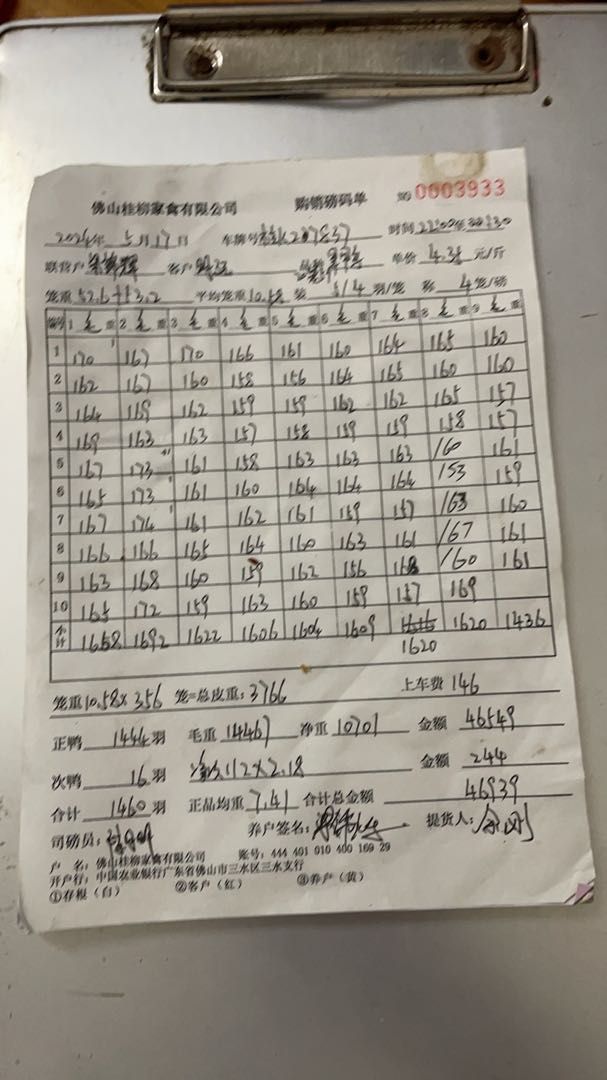 佛山桂柳家禽有限公司 购销磅码单 № 0003933
2024年 5月17日 车牌号 207837 时间
联营户 客户 品种 单价 4.35 元/斤
笼重 52.6+53.2 平均笼重 10.58 装 5/4 羽/笼 称 4 笼/磅
编号 1 毛重 2 毛重 3 毛重 4 毛重 5 毛重 6 毛重 7 毛重 8 毛重 9 毛重
1 170 167 170 166 161 160 164 165 160
2 162 167 160 158 156 164 165 160 160
3 164 169 162 159 159 162 162 165 157
4 169 163 163 157 158 159 159 158 157
5 167 173 161 158 163 163 163 160 161
6 165 173 161 160 164 164 164 153 159
7 167 174 161 162 161 159 157 163 160
8 166 166 165 164 160 163 161 167 161
9 163 168 160 159 162 156 168 160 161
10 165 172 159 163 160 159 157 169
小计 1658 1692 1622 1606 1604 1609 1616 1620 1436
1620
笼重 10.58 × 356 笼=总皮重: 3766 上车费 146
正鸭 1444 羽 毛重 14467 净重 10701 金额 46549
次鸭 16 羽 112×2.18 金额 244
合计 1460 羽 正品均重 7.41 合计总金额 46939
司磅员: 养户签名: 提货人:
户 名: 佛山桂柳家禽有限公司 账号: 444 401 010 400 169 29
开户行: 中国农业银行广东省佛山市三水区三水支行
①存根（白） ②客户（红） ③养户（黄）